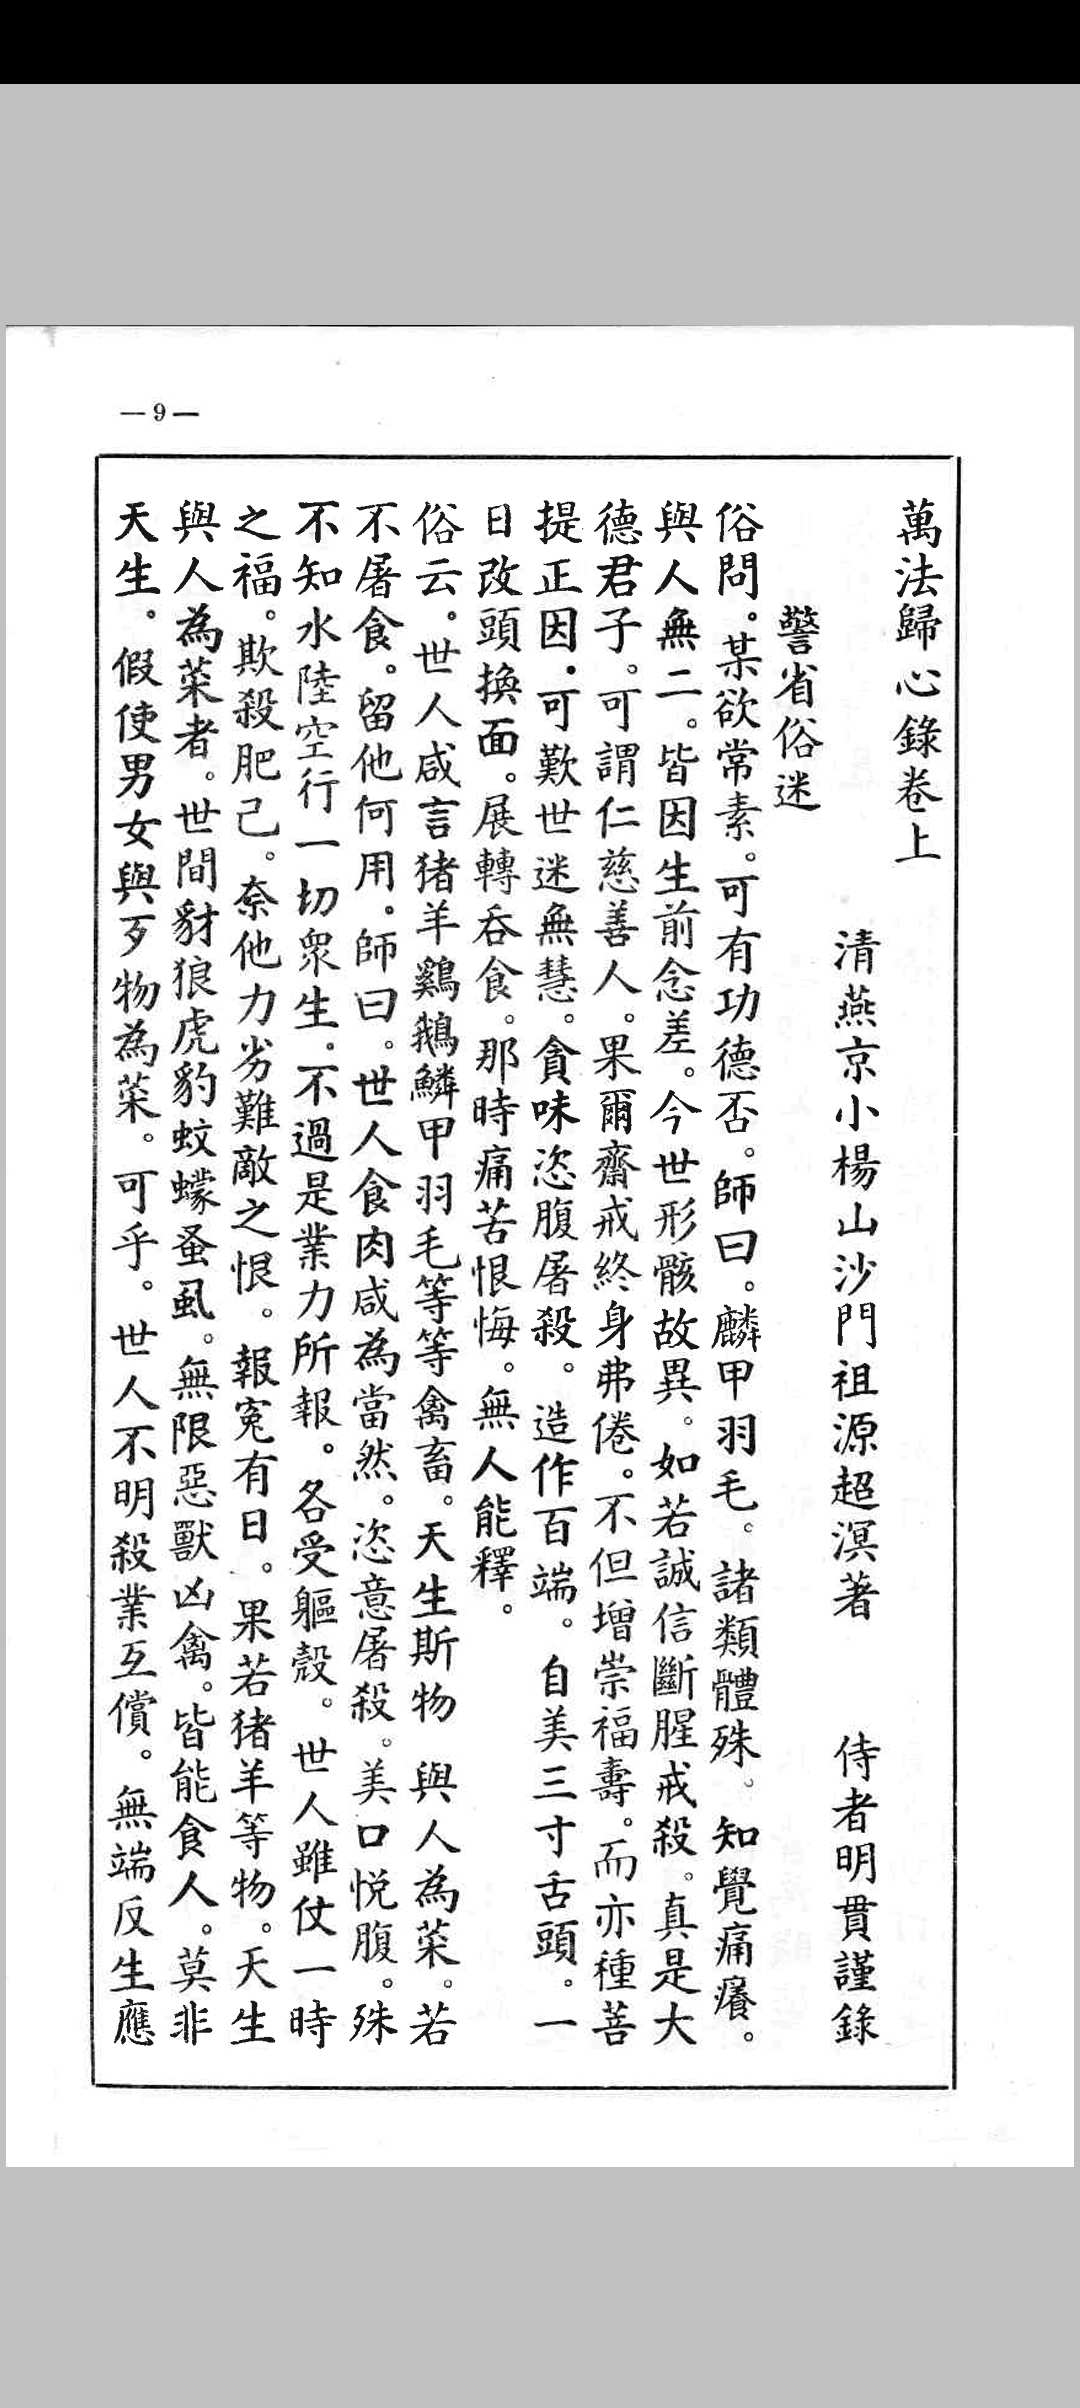 —9—
萬法歸心錄卷上
清燕京小楊山沙門祖源超溟著　侍者明貫謹錄
警省俗迷
俗問。某欲常素。可有功德否。師曰。麟甲羽毛。諸類體殊。知覺痛癢。
與人無二。皆因生前念差。今世形骸故異。如若誠信斷腥戒殺。真是大
德君子。可謂仁慈善人。果爾齋戒終身弗倦。不但增崇福壽。而亦種菩
提正因。可歎世迷無慧。貪味恣腹屠殺。造作百端。自美三寸舌頭。一
日改頭換面。展轉吞食。那時痛苦恨悔。無人能釋。
俗云。世人咸言猪羊鷄鵝鱗甲羽毛等等禽畜。天生斯物　與人為菜。若
不屠食。留他何用。師曰。世人食肉咸為當然。恣意屠殺。美口悅腹。殊
不知水陸空行一切眾生。不過是業力所報。各受軀殼。世人雖仗一時
之福。欺殺肥己。奈他力劣難敵之恨。報冤有日。果若猪羊等物。天生
與人為菜者。世間豺狼虎豹蚊蠓蚤虱。無限惡獸凶禽。皆能食人。莫非
天生。假使男女與歹物為菜。可乎。世人不明殺業互償。無端反生應